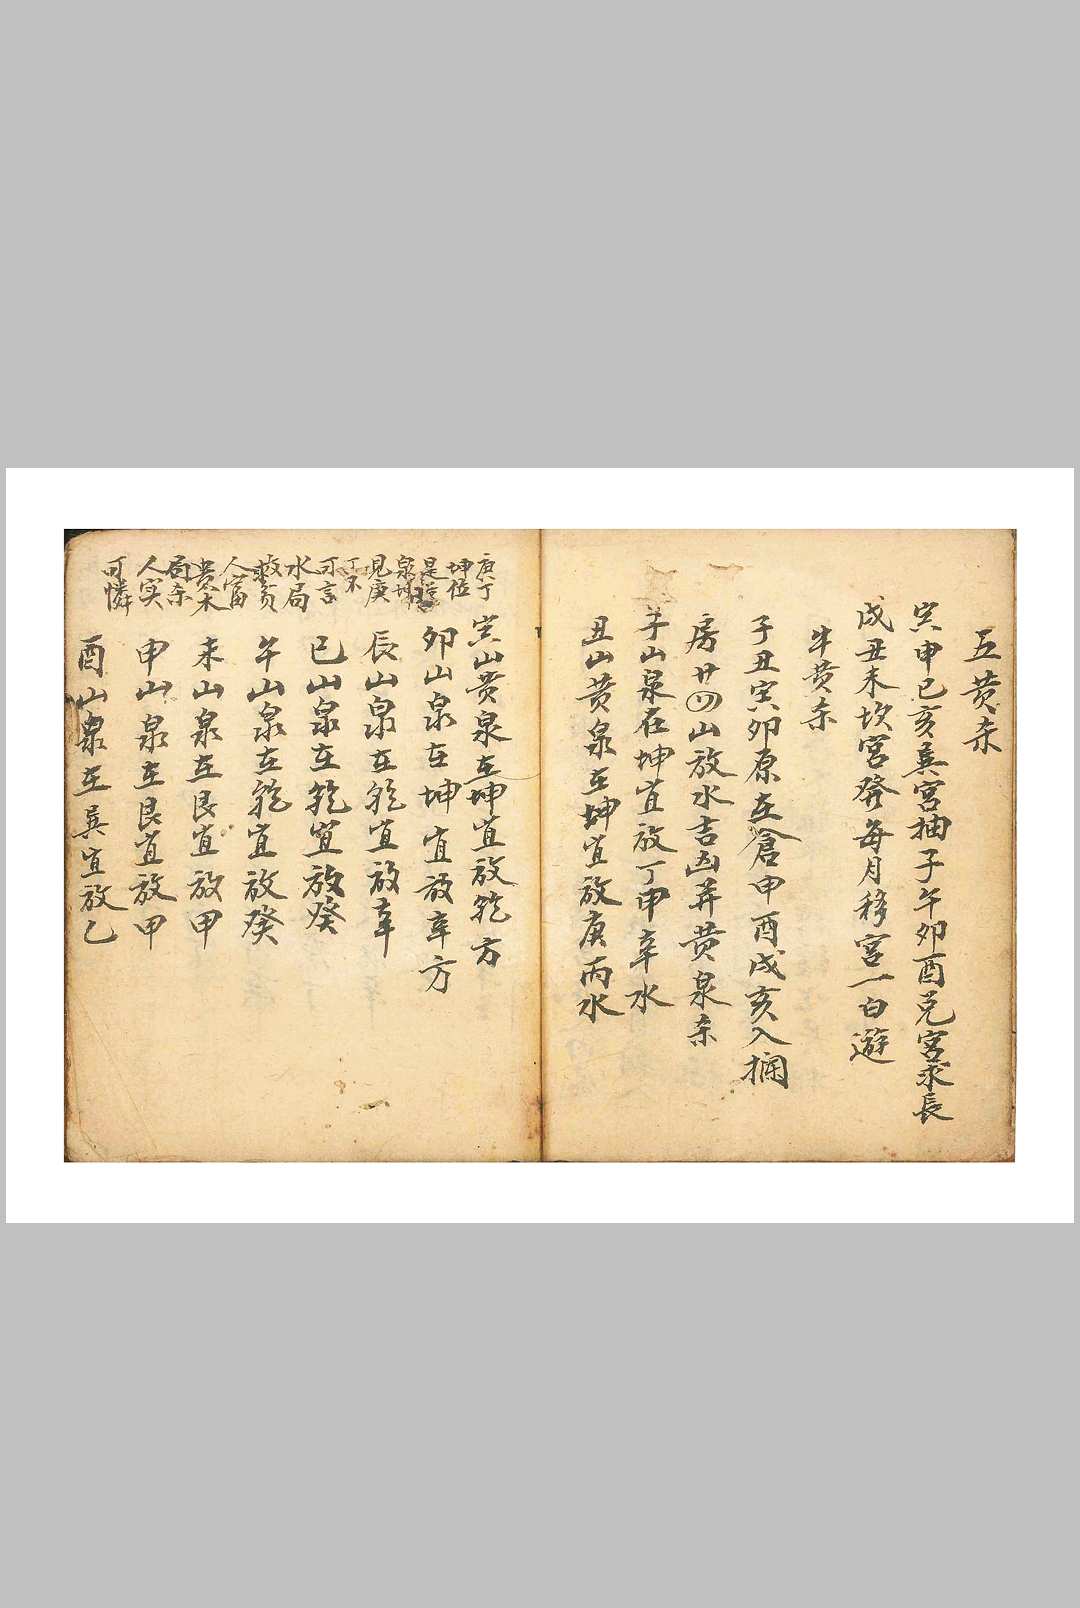 五黄杀
寅申巳亥巽宮抽子午卯酉兑宮求長
戌丑未坎宮發每月移宮一白遊
牛黄杀
子丑寅卯原在倉申酉戌亥入欄
房廿四山放水吉凶并黄泉杀
子山泉在坤宜放丁申辛水
丑山黄泉在坤宜放庚丙水
庚丁
坤位
是
泉坤
見庚
丁不
可言
水局
救貧
人富
黄木
局杀
人实
可憐
寅山黄泉在坤宜放乾方
卯山泉在坤宜放辛方
辰山泉在乾宜放辛
巳山泉在乾宜放癸
午山泉在乾宜放癸
未山泉在艮宜放甲
申山泉在艮宜放甲
酉山泉在巽宜放乙